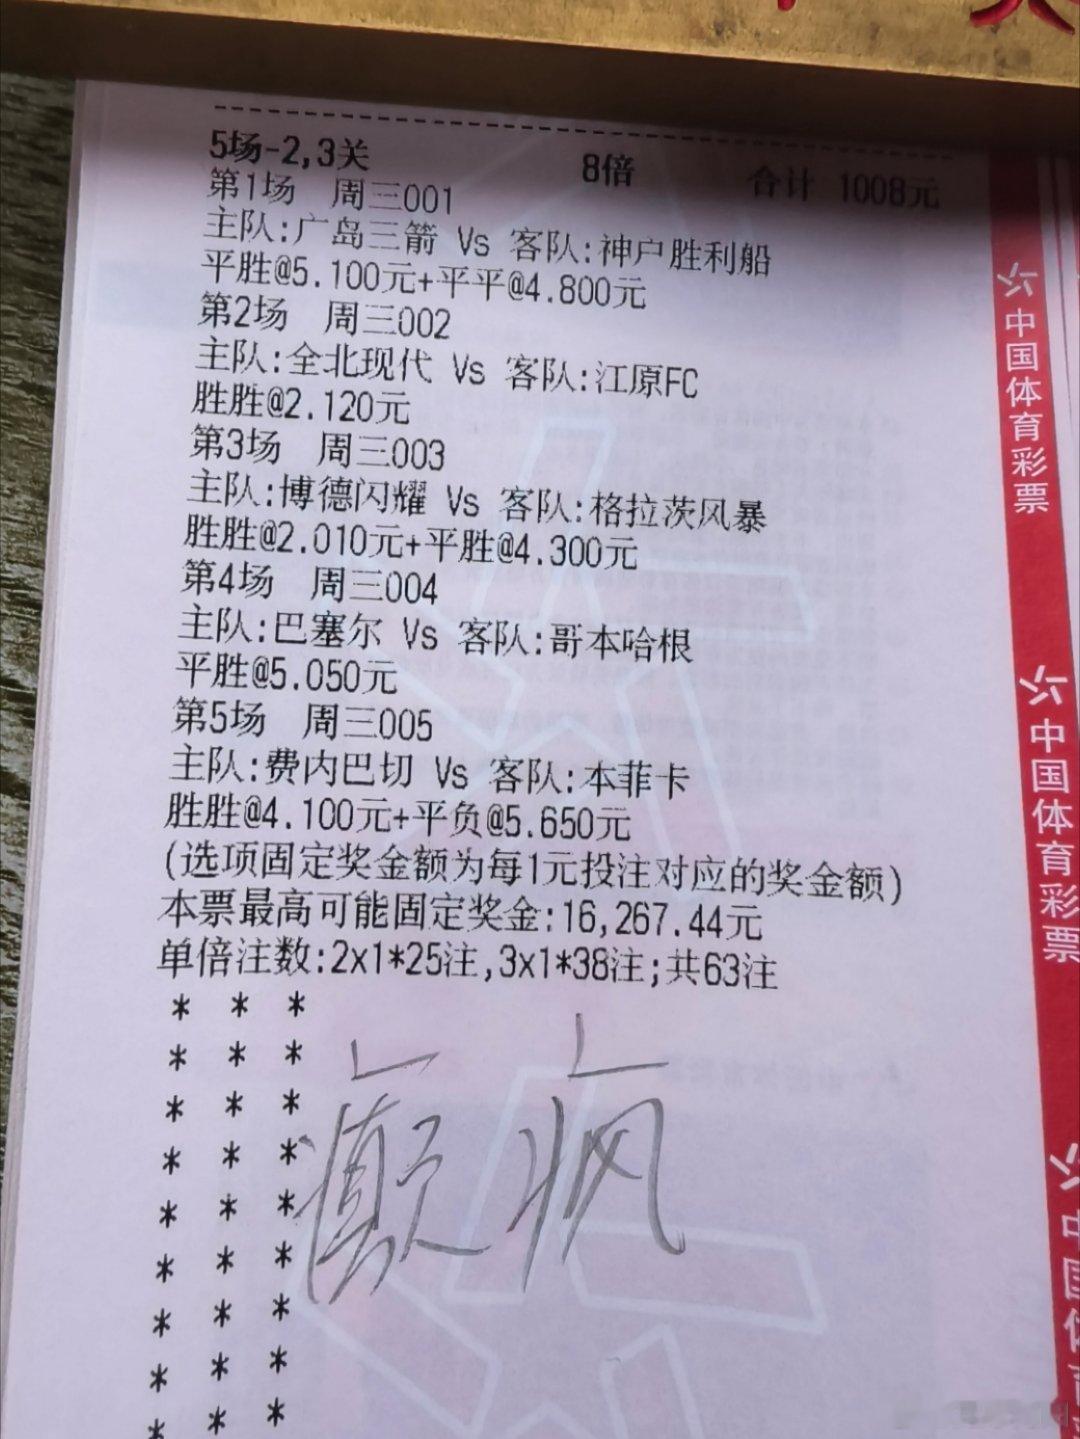 5场-2,3关 8倍 合计 1008元
第1场 周三001
主队:广岛三箭 Vs 客队:神户胜利船
平胜@5.100元+平平@4.800元
第2场 周三002
主队:全北现代 Vs 客队:江原FC
胜胜@2.120元
第3场 周三003
主队:博德闪耀 Vs 客队:格拉茨风暴
胜胜@2.010元+平胜@4.300元
第4场 周三004
主队:巴塞尔 Vs 客队:哥本哈根
平胜@5.050元
第5场 周三005
主队:费内巴切 Vs 客队:本菲卡
胜胜@4.100元+平负@5.650元
(选项固定奖金额为每1元投注对应的奖金额)
本票最高可能固定奖金:16,267.44元
单倍注数:2x1*25注,3x1*38注;共63注
* * *
* * *
* * *
* * *
* * *
* * *
* * *
* * *
* * *
癫疯
中国体育彩票
中国体育彩票
中国体